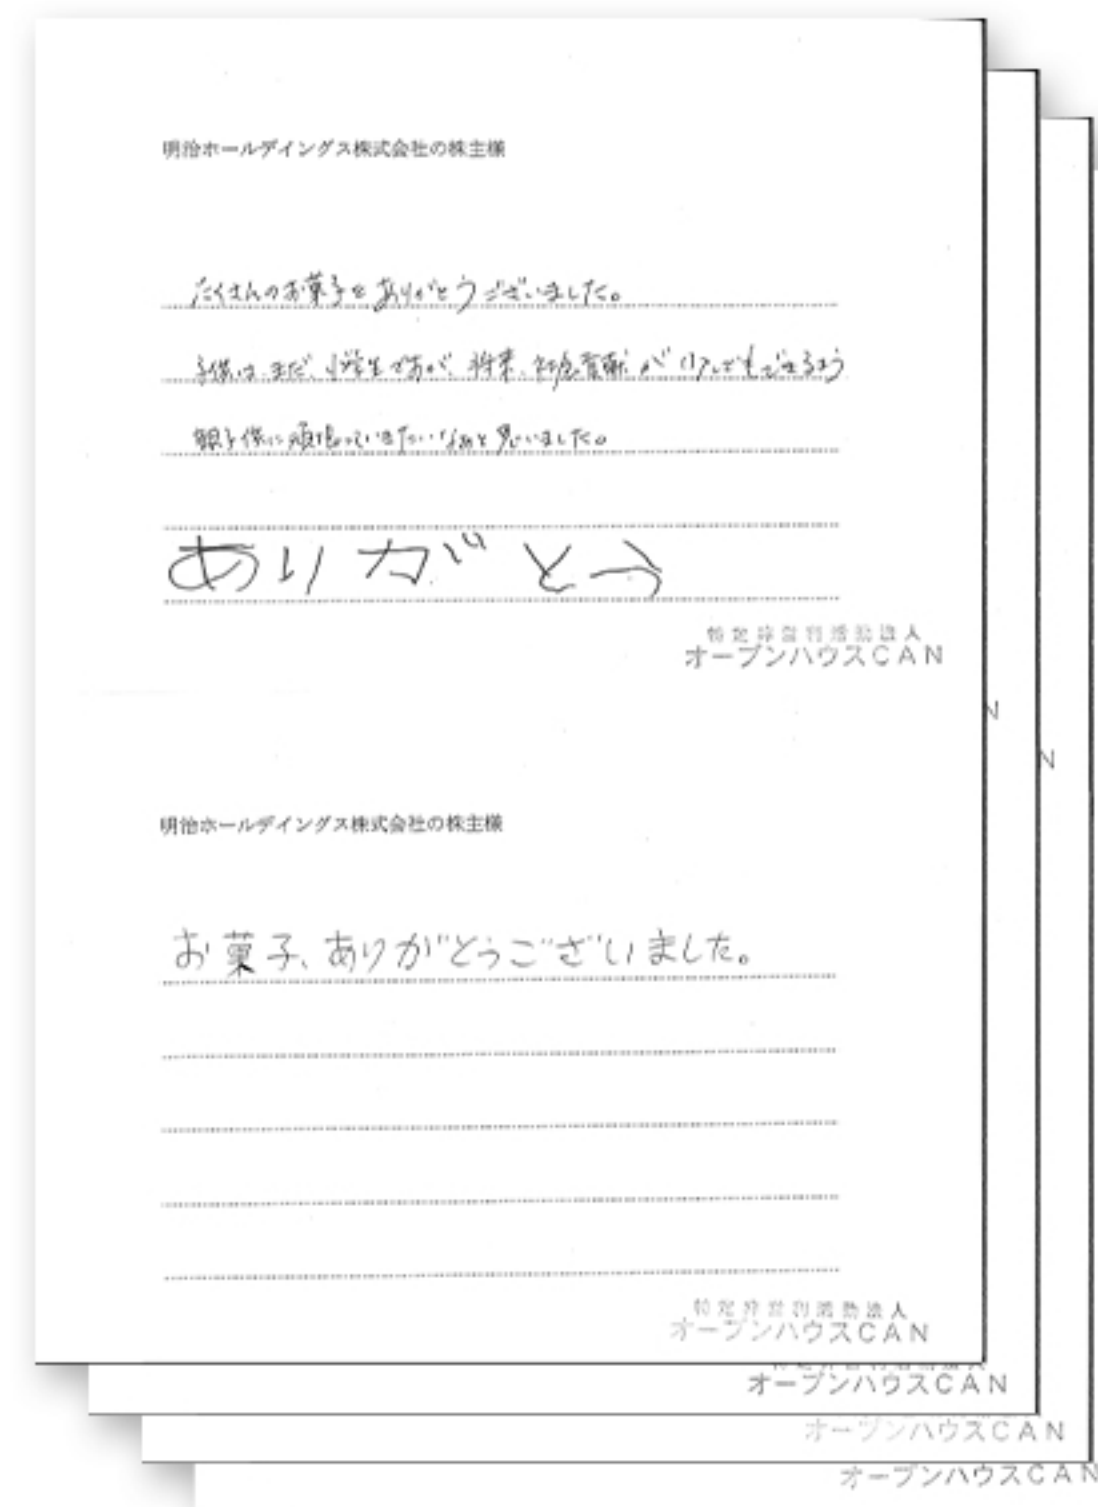 明治ホールデイングス株式会社の株主様
たくさんのお菓子をありがとうございました。
子供は、まだ、小学生ですが、将来、社会貢献が できるよう
親子供に頑張っていきたいなあと思いました。
ありがとう
特定非営利活動法人
オープンハウスCAN
N
N
明治ホールデイングス株式会社の株主様
お菓子、ありがとうございました。
特定非営利活動法人
オープンハウスCAN
オープンハウスCAN
オープンハウスCAN
オープンハウスCAN